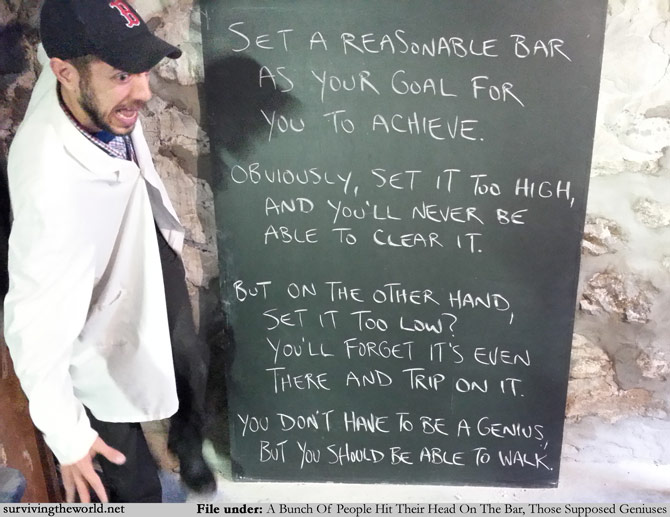 SET A REASONABLE BAR
AS YOUR GOAL FOR
YOU TO ACHIEVE.
OBVIOUSLY, SET IT TOO HIGH,
AND YOU'LL NEVER BE
ABLE TO CLEAR IT.
BUT ON THE OTHER HAND,
SET IT TOO LOW?
YOU'LL FORGET IT'S EVEN
THERE AND TRIP ON IT.
YOU DON'T HAVE TO BE A GENIUS,
BUT YOU SHOULD BE ABLE TO WALK.
survivingtheworld.net File under: A Bunch Of People Hit Their Head On The Bar, Those Supposed Geniuses
B